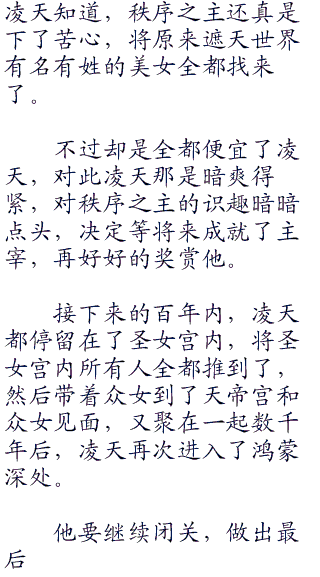 凌天知道，秩序之主还真是
下了苦心，将原来遮天世界
有名有姓的美女全都找来
了。
不过却是全都便宜了凌
天，对此凌天那是暗爽得
紧，对秩序之主的识趣暗暗
点头，决定等将来成就了主
宰，再好好的奖赏他。
接下来的百年内，凌天
都停留在了圣女宫内，将圣
女宫内所有人全都推到了，
然后带着众女到了天帝宫和
众女见面，又聚在一起数千
年后，凌天再次进入了鸿蒙
深处。
他要继续闭关，做出最
后